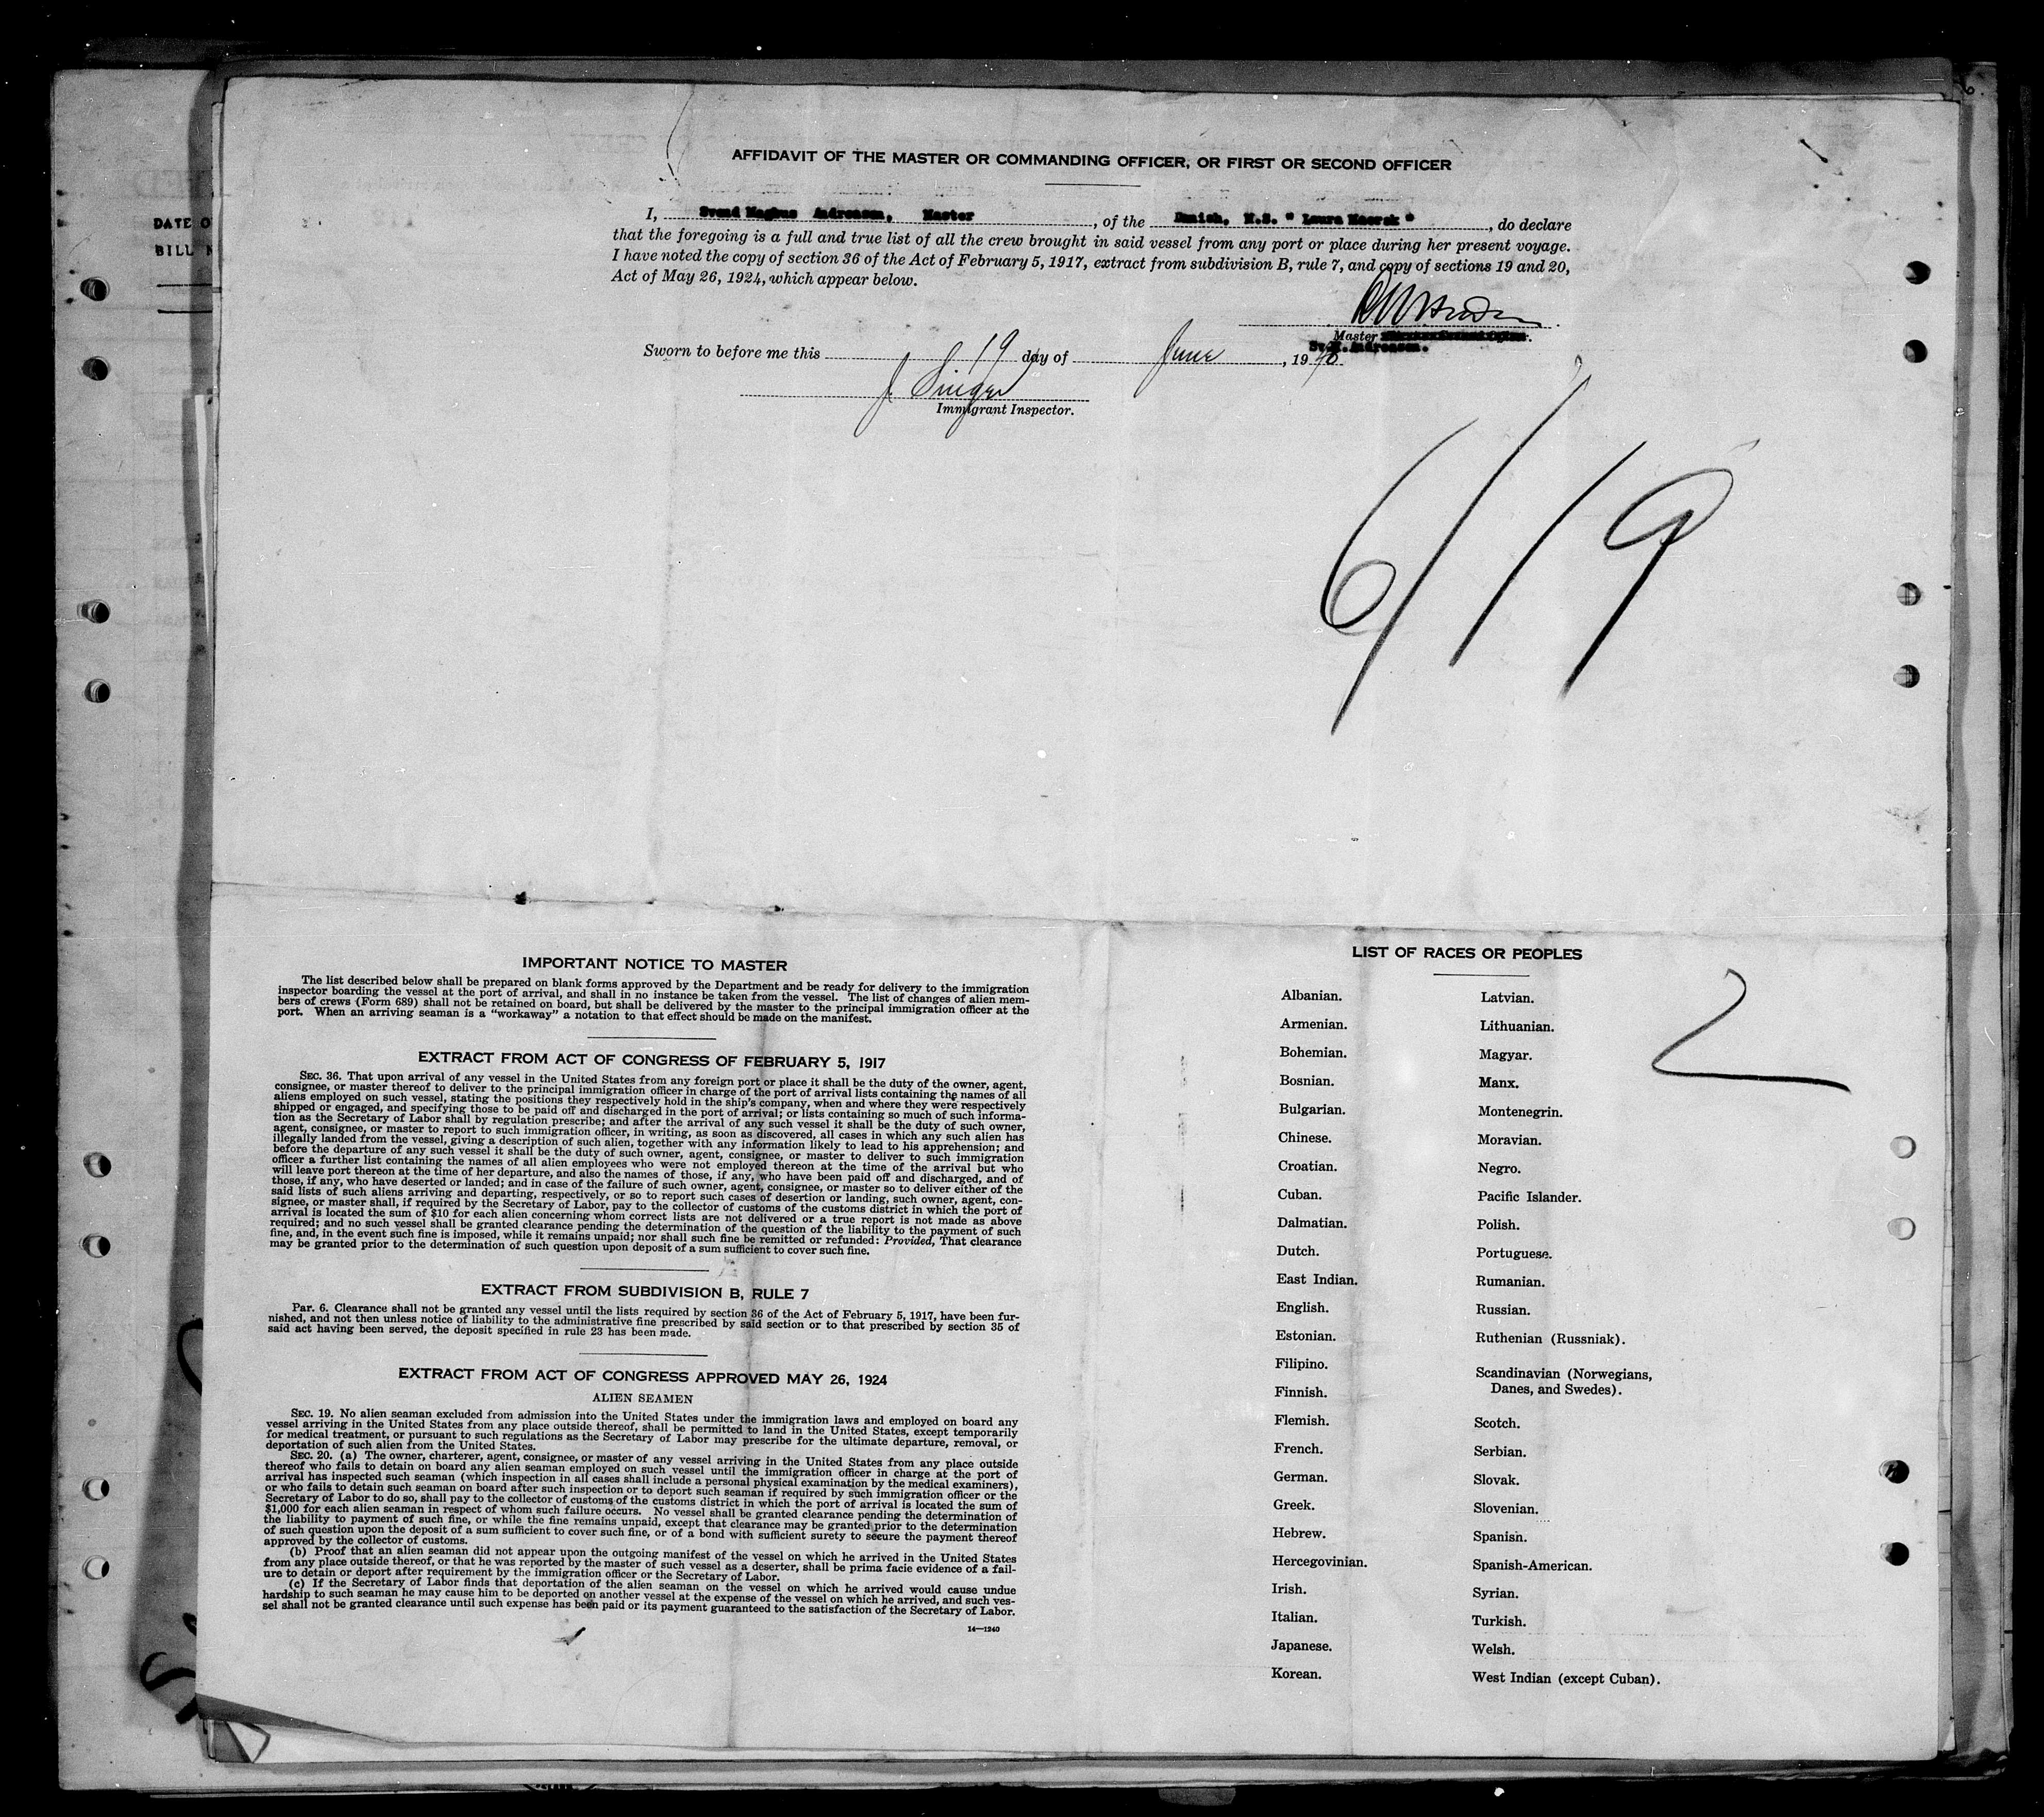 DATE O
BILL N
AFFIDAVIT OF THE MASTER OR COMMANDING OFFICER, OR FIRST OR SECOND OFFICER
I, Svend Magnus Andreasen, Master, of the Danish, M.S. " Laura Maersk ", do declare
that the foregoing is a full and true list of all the crew brought in said vessel from any port or place during her present voyage.
I have noted the copy of section 36 of the Act of February 5, 1917, extract from subdivision B, rule 7, and copy of sections 19 and 20,
Act of May 26, 1924, which appear below.
Master
Sv.M.Andreasen.
Sworn to before me this 19 day of June, 1940
J. Singer
Immigrant Inspector.
6/19
IMPORTANT NOTICE TO MASTER
The list described below shall be prepared on blank forms approved by the Department and be ready for delivery to the immigration
inspector boarding the vessel at the port of arrival, and shall in no instance be taken from the vessel. The list of changes of alien mem-
bers of crews (Form 689) shall not be retained on board, but shall be delivered by the master to the principal immigration officer at the
port. When an arriving seaman is a "workaway" a notation to that effect should be made on the manifest.
EXTRACT FROM ACT OF CONGRESS OF FEBRUARY 5, 1917
SEC. 36. That upon arrival of any vessel in the United States from any foreign port or place it shall be the duty of the owner, agent,
consignee, or master thereof to deliver to the principal immigration officer in charge of the port of arrival lists containing the names of all
aliens employed on such vessel, stating the positions they respectively hold in the ship's company, when and where they were respectively
shipped or engaged, and specifying those to be paid off and discharged in the port of arrival; or lists containing so much of such informa-
tion as the Secretary of Labor shall by regulation prescribe; and after the arrival of any such vessel it shall be the duty of such owner,
agent, consignee, or master to report to such immigration officer, in writing, as soon as discovered, all cases in which any such alien has
illegally landed from the vessel, giving a description of such alien, together with any information likely to lead to his apprehension; and
before the departure of any such vessel it shall be the duty of such owner, agent, consignee, or master to deliver to such immigration
officer a further list containing the names of all alien employees who were not employed thereon at the time of the arrival but who
will leave port thereon at the time of her departure, and also the names of those, if any, who have been paid off and discharged, and of
those, if any, who have deserted or landed; and in case of the failure of such owner, agent, consignee, or master so to deliver either of the
said lists of such aliens arriving and departing, respectively, or so to report such cases of desertion or landing, such owner, agent, con-
signee, or master shall, if required by the Secretary of Labor, pay to the collector of customs of the customs district in which the port of
arrival is located the sum of $10 for each alien concerning whom correct lists are not delivered or a true report is not made as above
required; and no such vessel shall be granted clearance pending the determination of the question of the liability to the payment of such
fine, and, in the event such fine is imposed, while it remains unpaid; nor shall such fine be remitted or refunded: Provided, That clearance
may be granted prior to the determination of such question upon deposit of a sum sufficient to cover such fine.
EXTRACT FROM SUBDIVISION B, RULE 7
Par. 6. Clearance shall not be granted any vessel until the lists required by section 36 of the Act of February 5, 1917, have been fur-
nished, and not then unless notice of liability to the administrative fine prescribed by said section or to that prescribed by section 35 of
said act having been served, the deposit specified in rule 23 has been made.
EXTRACT FROM ACT OF CONGRESS APPROVED MAY 26, 1924
ALIEN SEAMEN
SEC. 19. No alien seaman excluded from admission into the United States under the immigration laws and employed on board any
vessel arriving in the United States from any place outside thereof, shall be permitted to land in the United States, except temporarily
for medical treatment, or pursuant to such regulations as the Secretary of Labor may prescribe for the ultimate departure, removal, or
deportation of such alien from the United States.
SEC. 20. (a) The owner, charterer, agent, consignee, or master of any vessel arriving in the United States from any place outside
thereof who fails to detain on board any alien seaman employed on such vessel until the immigration officer in charge at the port of
arrival has inspected such seaman (which inspection in all cases shall include a personal physical examination by the medical examiners),
or who fails to detain such seaman on board after such inspection or to deport such seaman if required by such immigration officer or the
Secretary of Labor to do so, shall pay to the collector of customs of the customs district in which the port of arrival is located the sum of
$1,000 for each alien seaman in respect of whom such failure occurs. No vessel shall be granted clearance pending the determination of
the liability to payment of such fine, or while the fine remains unpaid, except that clearance may be granted prior to the determination
of such question upon the deposit of a sum sufficient to cover such fine, or of a bond with sufficient surety to secure the payment thereof
approved by the collector of customs.
(b) Proof that an alien seaman did not appear upon the outgoing manifest of the vessel on which he arrived in the United States
from any place outside thereof, or that he was reported by the master of such vessel as a deserter, shall be prima facie evidence of a fail-
ure to detain or deport after requirement by the immigration officer or the Secretary of Labor.
(c) If the Secretary of Labor finds that deportation of the alien seaman on the vessel on which he arrived would cause undue
hardship to such seaman he may cause him to be deported on another vessel at the expense of the vessel on which he arrived, and such ves-
sel shall not be granted clearance until such expense has been paid or its payment guaranteed to the satisfaction of the Secretary of Labor.
14—1240
LIST OF RACES OR PEOPLES
Albanian.
Armenian.
Bohemian.
Bosnian.
Bulgarian.
Chinese.
Croatian.
Cuban.
Dalmatian.
Dutch.
East Indian.
English.
Estonian.
Filipino.
Finnish.
Flemish.
French.
German.
Greek.
Hebrew.
Hercegovinian.
Irish.
Italian.
Japanese.
Korean.
Latvian.
Lithuanian.
Magyar.
Manx.
Montenegrin.
Moravian.
Negro.
Pacific Islander.
Polish.
Portuguese.
Rumanian.
Russian.
Ruthenian (Russniak).
Scandinavian (Norwegians,
Danes, and Swedes).
Scotch.
Serbian.
Slovak.
Slovenian.
Spanish.
Spanish-American.
Syrian.
Turkish.
Welsh.
West Indian (except Cuban).
2